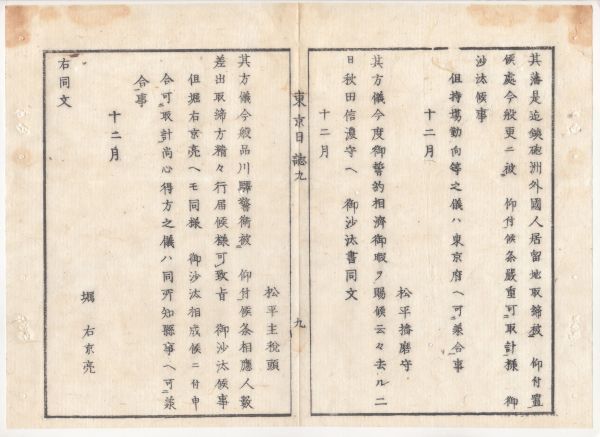 其藩是迄鐵砲洲外國人居留地取締被　仰付置
候處今般更ニ被　仰付候条嚴重可取計樣　御
沙汰候事
但持塲勤向等之儀ハ東京府ヘ可承合事
十二月
松平播磨守
其方儀今度御誓約相濟御暇ヲ賜候云々去ル二
日秋田信濃守ヘ　御沙汰書同文
十二月
東京日誌九
九
松平主税頭
其方儀今般品川驛警衛被　仰付候条相應人數
差出取締方精々行届候樣可致旨　御沙汰候事
但堀右京亮ヘモ同樣　御沙汰相成候ニ付申
合可取計尚心得方之儀ハ同所知縣事ヘ可承
合事
十二月
堀　右京亮
右同文